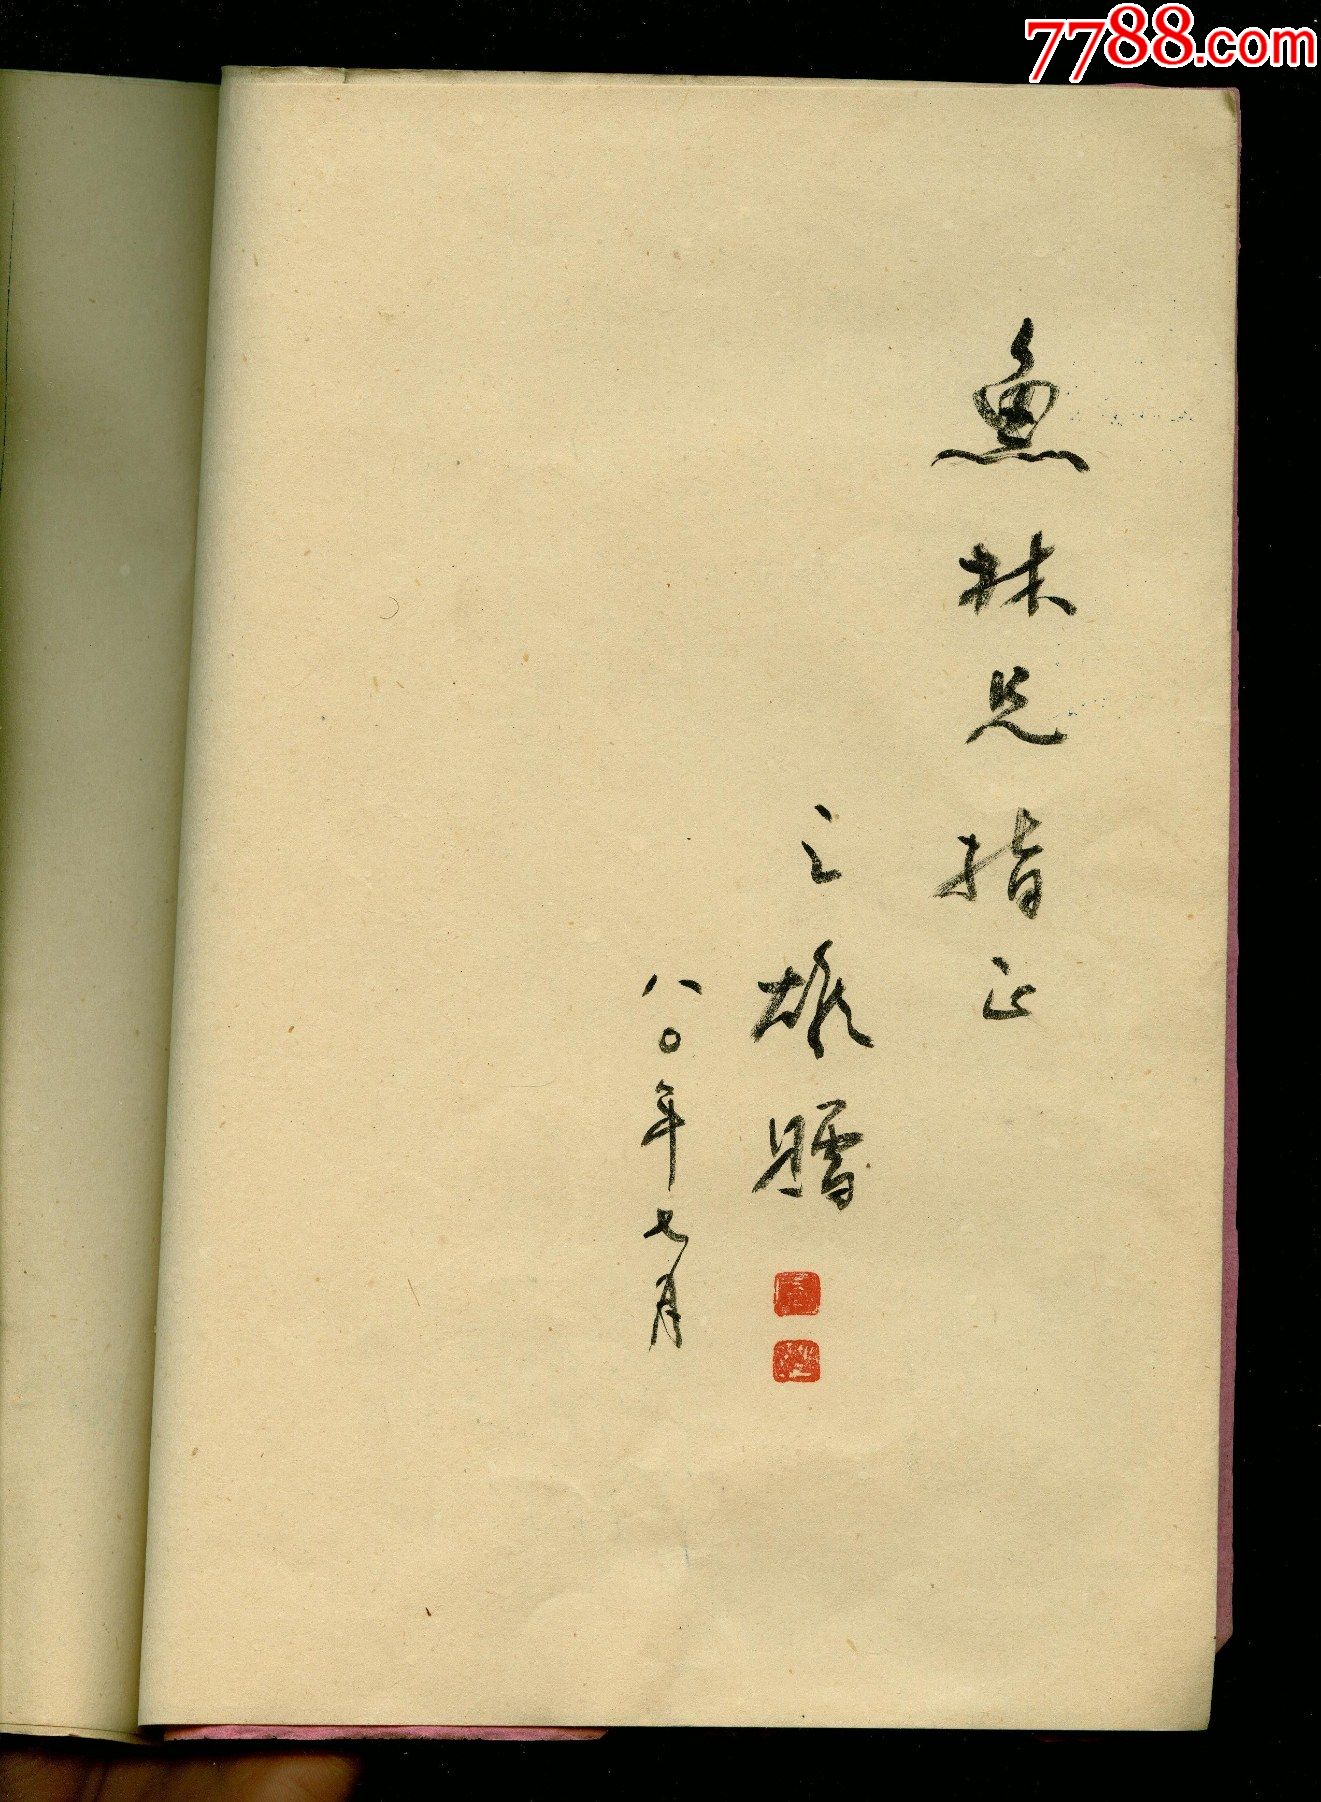 7788.com
魚林兄指正
之雄贈
八〇年七月